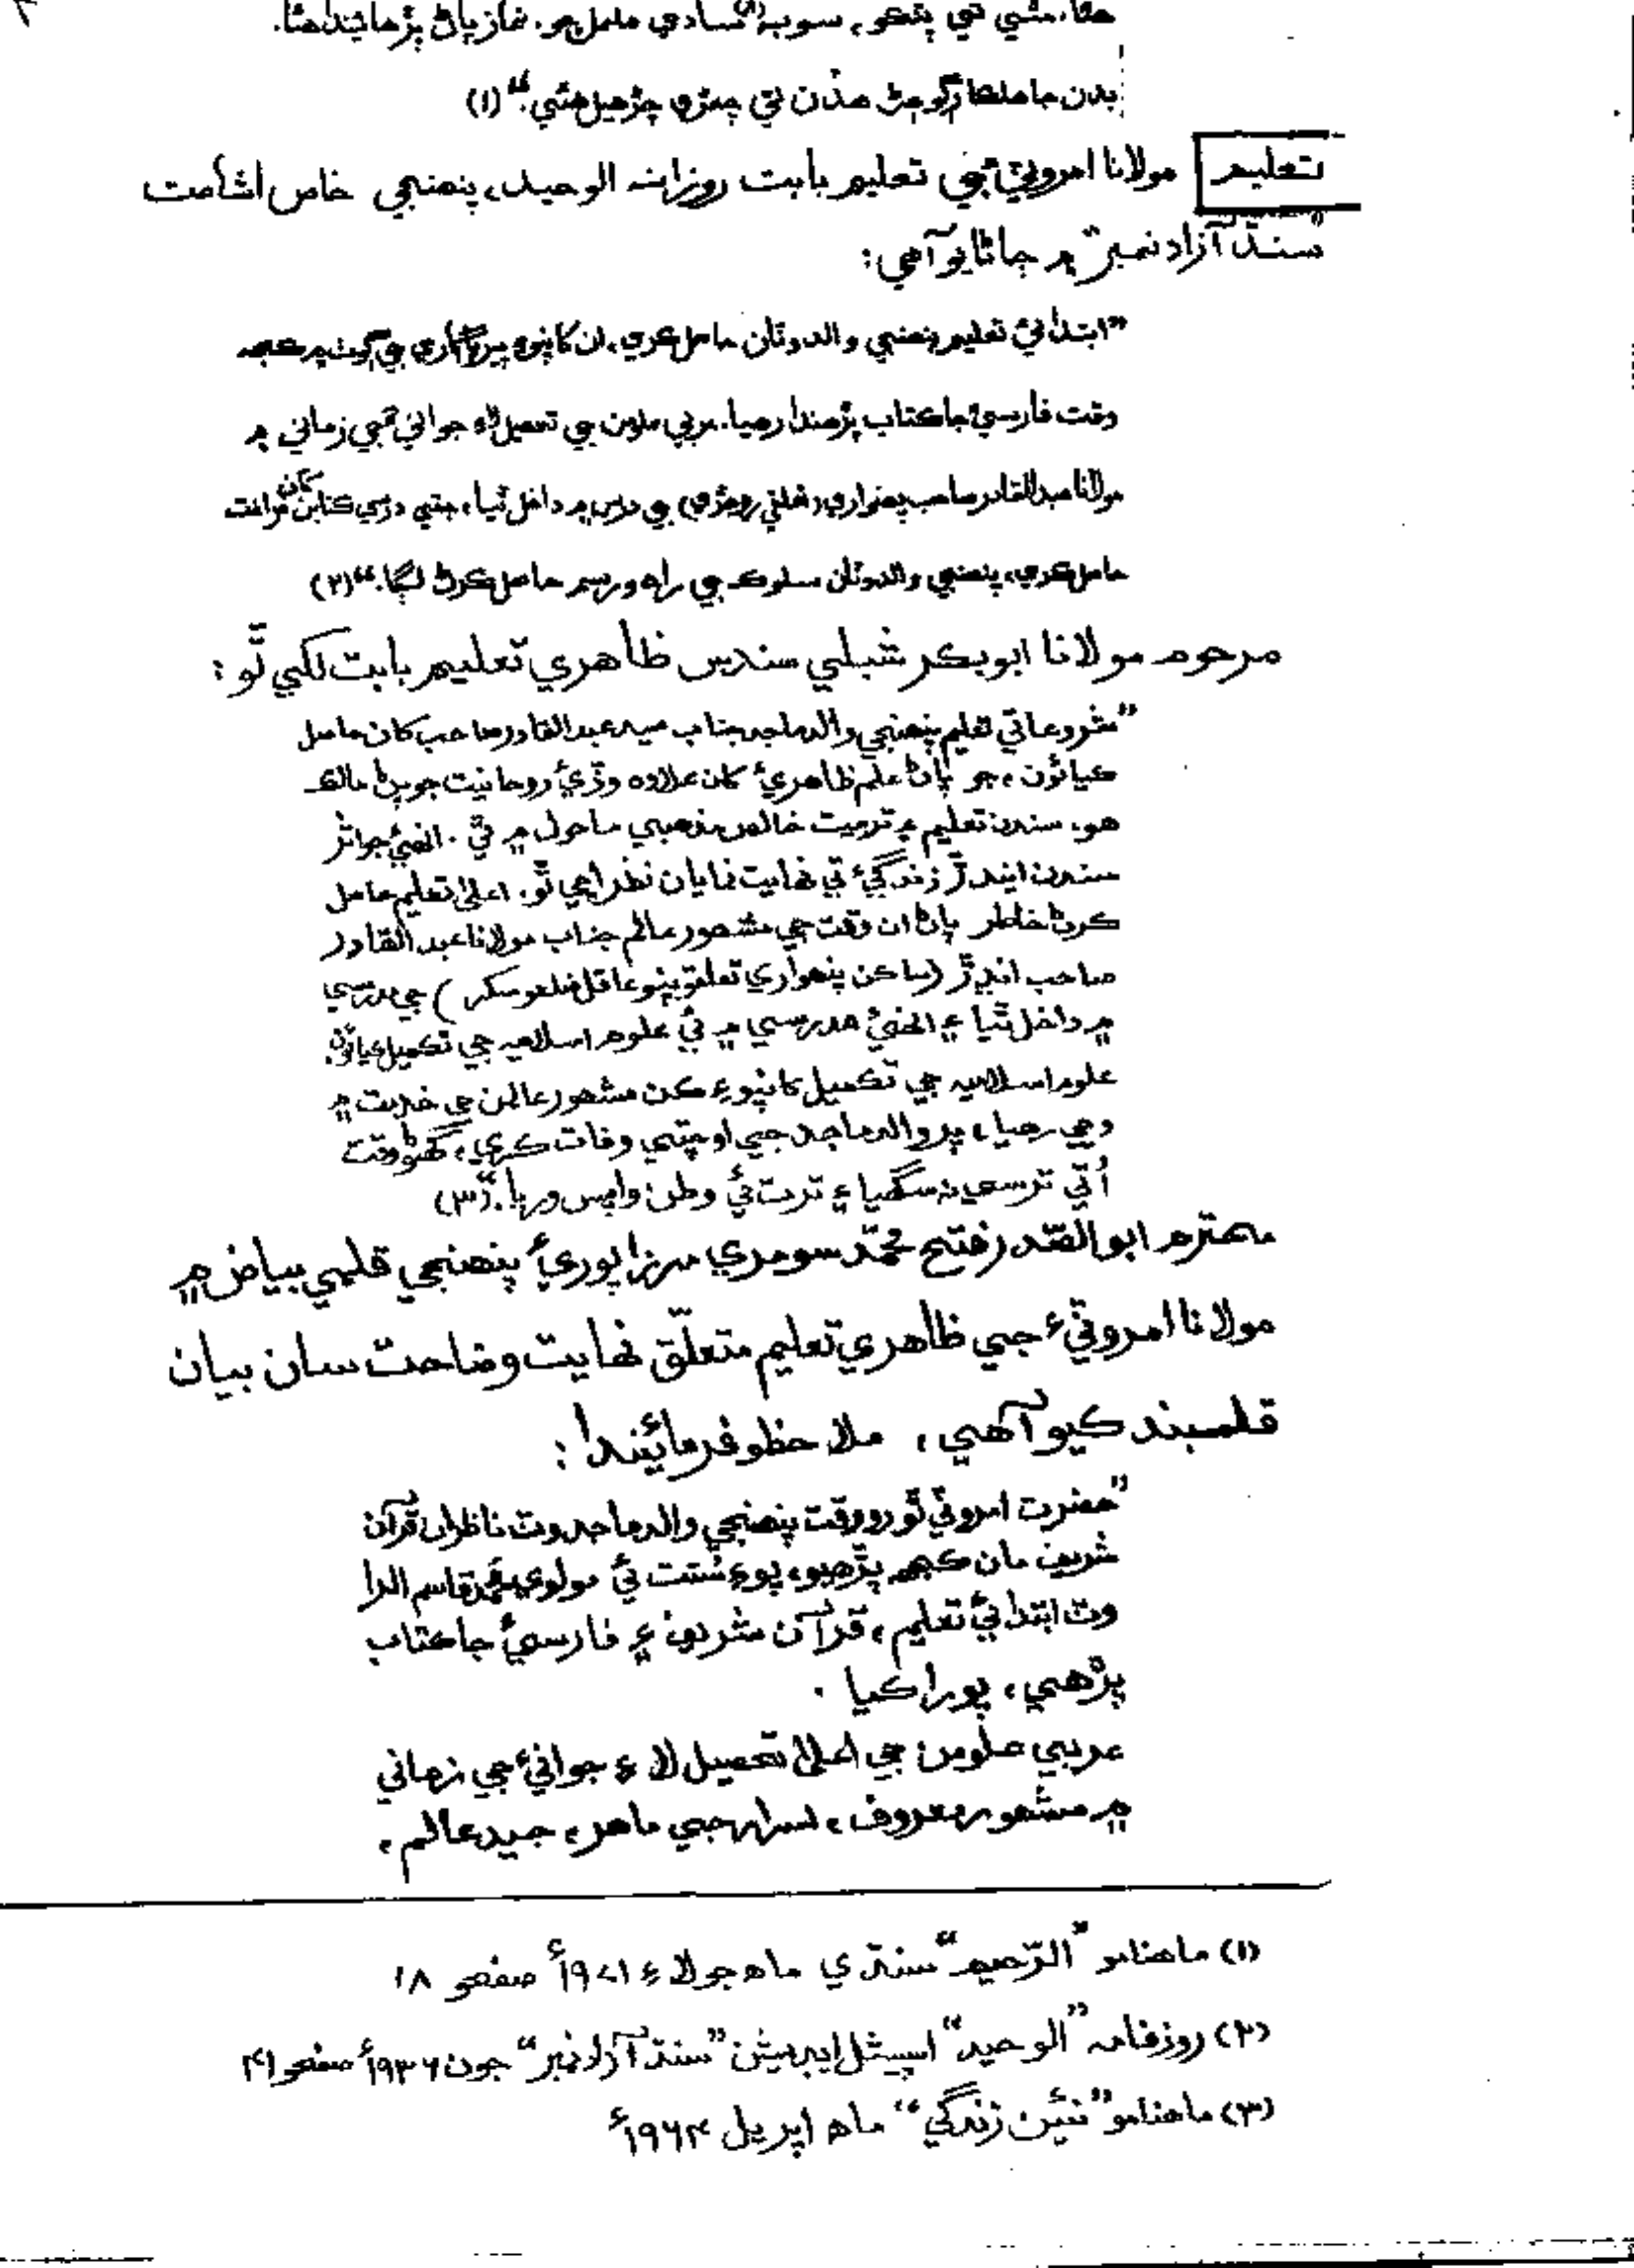 هئا. مٿي تي پٽڪو، سوبه سادي ململ جو. نماز پاڻ پڙهائيندا هئا.
بدن جا ملها رڳو چڻ هڏن تي چمڙي چڙهيل هئي.“ (۱)
تعليم مولانا امروٽيءَ جي تعليم بابت روزانه الوحيد، پنهنجي خاص اشاعت
”سنڌ آزاد نمبر“ ۾ ڄاڻايو آهي:
”ابتدائي تعليم پنهنجي والد وٽان حاصل ڪري، ان کانپوءِ جي ڳوٺ ۾ ڪجهه
وقت فارسيءَ جا ڪتاب پڙهندا رهيا. عربي علومن جي تحصيل لاءِ جوانيءَ جي زماني ۾
مولانا عبدالقادر صاحب پنهواري جي درس ۾ داخل ٿيا، جتي درسي ڪتابن کان فراغت
حاصل ڪري، پنهنجي والد وٽان سلوڪ جي راه ورسم حاصل ڪرڻ لڳا.“ (۲)
مرحوم مولانا ابوبڪر شبلي سندس ظاهري تعليم بابت لکي ٿو:
”شروعاتي تعليم پنهنجي والد ماجد جناب سيد عبدالقادر صاحب کان حاصل
ڪيائون، جو پاڻ علم ظاهريءَ کان علاوه وڏيءَ روحانيت جو پڻ مالڪ
هو. سندن تعليم ۽ تربيت خالص مذهبي ماحول ۾ ٿي. انهيءَ جو اثر
سندن ايندڙ زندگيءَ تي نهايت نمايان نظر اچي ٿو. اعليٰ تعليم حاصل
ڪرڻ خاطر پاڻ ان وقت جي مشهور عالم جناب مولانا عبدالقادر
صاحب انڍڙ (ساڪن پنهواري تعلقو پنو عاقل ضلعو سکر) جي مدرسي
۾ داخل ٿيا ۽ انهيءَ مدرسي ۾ ئي علوم اسلاميه جي تڪميل ڪيائون.
علوم اسلاميه جي تڪميل کانپوءِ ڪن مشهور عالمن جي خدمت ۾
وڃي رهيا، پر والد ماجد جي اوچتي وفات ڪري، گهڻو وقت
اُتي ترسي نه سگهيا ۽ ترت ئي وطن واپس وريا.“ (۳)
محترم ابوالقدر فتح محمد سومري مرزاپوريءَ پنهنجي قلمي بياض ۾
مولانا امروٽيءَ جي ظاهري تعليم متعلق نهايت وضاحت سان بيان
قلمبند ڪيو آهي، ملاحظو فرمائيندا:
”حضرت امروٽي ٿورو وقت پنهنجي والد ماجد وٽ ناظران قرآن
شريف مان ڪجهه پڙهيو، پوءِ ئي مولوي محمد قاسم
وٽ ابتدائي تعليم، قرآن شريف ۽ فارسيءَ جا ڪتاب
پڙهي، پورا ڪيا.
عربي علومن جي اعليٰ تحصيل لاءِ جوانيءَ جي زماني
۾ مشهور معروف، جي ماهر، جيد عالم،
(۱) ماهنامو ”الرّحيم“ سنڌي ماه جولاءِ ۱۹۷۱ع صفحو ۱۸
(۲) روزنامه ”الوحيد“ اسپيشل ايڊيشن ”سنڌ آزاد نمبر“ جون ۱۹۳۶ع صفحو ۴۱
(۳) ماهنامو ”نئين زندگي“ ماه اپريل ۱۹۶۴ع